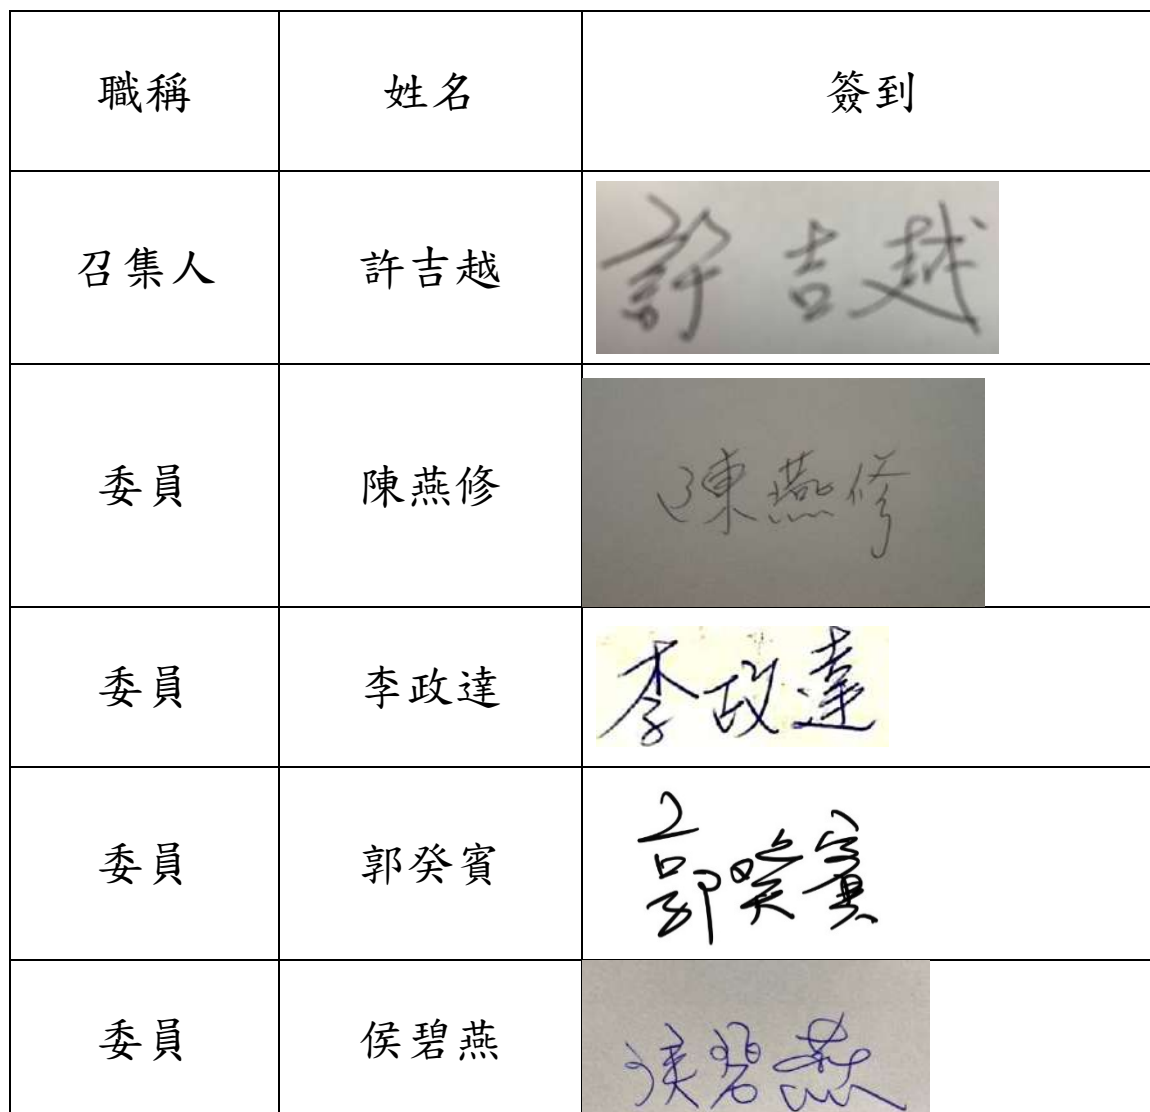 職稱 姓名 簽到
召集人 許吉越 許吉越
委員 陳燕修 陳燕修
委員 李政達 李政達
委員 郭癸賓 郭癸賓
委員 侯碧燕 侯碧燕